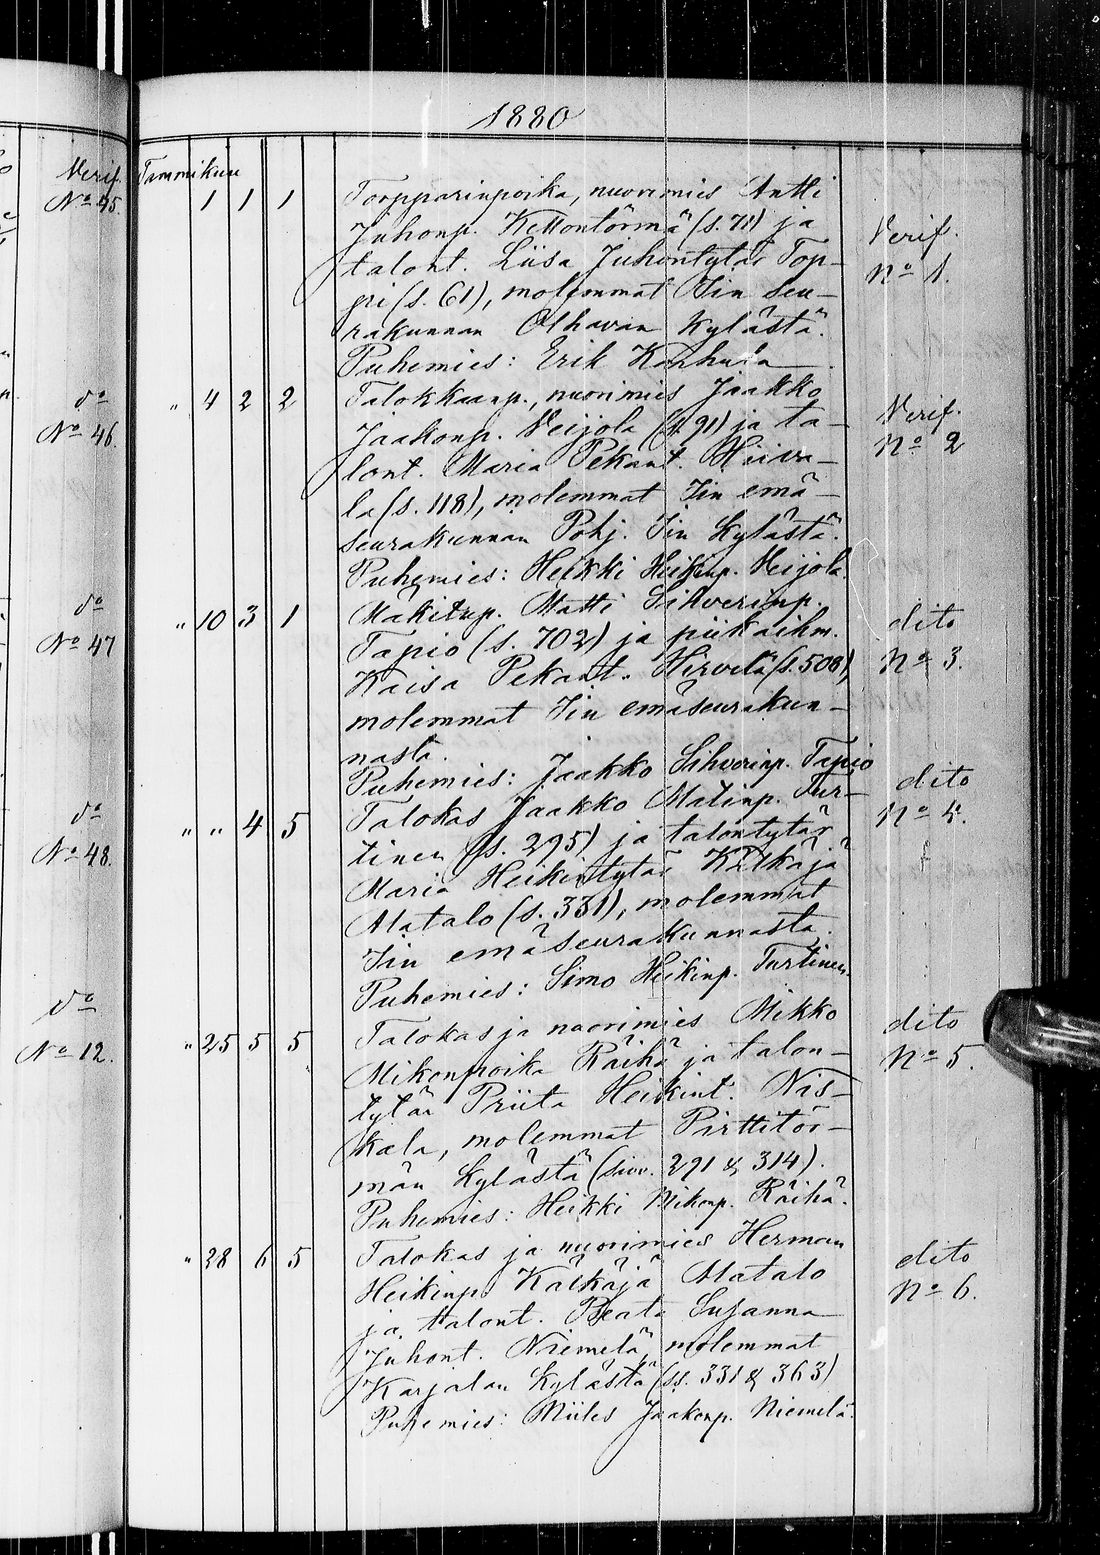 1880
Verif. Tammikuu
No 45. 1 1 1 Torpparinpoika, nuorimies Antti
Juhonp. Kettontörmä (s. 71) ja Verif.
talont. Liisa Juhontytär Top- No 1.
pi (s. 61), molemmat Iin seu-
rakunnan Olhavan kylästä.
Puhemies: Erik Karhula
do " 4 2 2 Talokkaanp., nuorimies Jaakko Verif.
No 46. Jaakonp. Veijola (s. 91) ja ta- No 2
lont. Maria Pekant. Hiiva-
la (s. 118), molemmat Iin emä-
seurakunnan Pohj. Iin kylästä.
Puhemies: Heikki Heikinp. Veijola.
do " 10 3 1 Mäkitup. Matti Sihverinp. dito
No 47 Tapio (s. 702) ja piikaihm. No 3.
Kaisa Pekant. Hirvelä (s. 508),
molemmat Iin emäseurakun-
nasta.
Puhemies: Jaakko Sihverinp. Tapio dito
do " " 4 5 Talokas Jaakko Matinp. Tur- No 4.
No 48. tinen (s. 295) ja talontytär
Maria Heikintytär Kälkäjä
Alatalo (s. 331), molemmat
Iin emäseurakunnasta.
Puhemies: Simo Heikinp. Turtinen.
do " 25 5 5 Talokas ja nuorimies Mikko dito
No 12. Mikonpoika Räihä ja talon- No 5.
tytär Priita Heikint. Nis-
kala, molemmat Pirttitör-
män kylästä (sivv. 291 & 314).
Puhemies: Heikki Mikonp. Räihä.
" 28 6 5 Talokas ja nuorimies Herman dito
Heikinp. Kälkäjä Alatalo No 6.
ja talont. Beata Susanna
Juhont. Niemelä, molemmat
Karjalan kylästä (ss. 331 & 363)
Puhemies: Miiles Jaakonp. Niemelä.